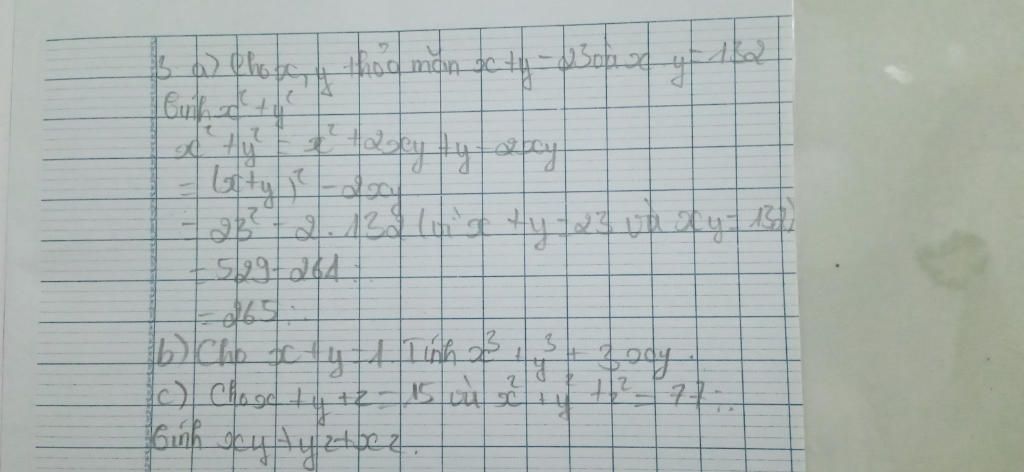 3 a) Cho x, y thỏa mãn x + y = 23 và x y = 132
Tính x² + y²
x² + y² = x² + 2xy + y - 2xy
= (x + y)² - 2xy
= 23² - 2 . 132 (vì x + y = 23 và xy = 132)
= 529 - 264
= 265
b) Cho x + y = 1. Tính x³ + y³ + 3xy.
c) Cho x + y + z = 15 và x² + y² + z² = 77
Tính xy + yz + xz.